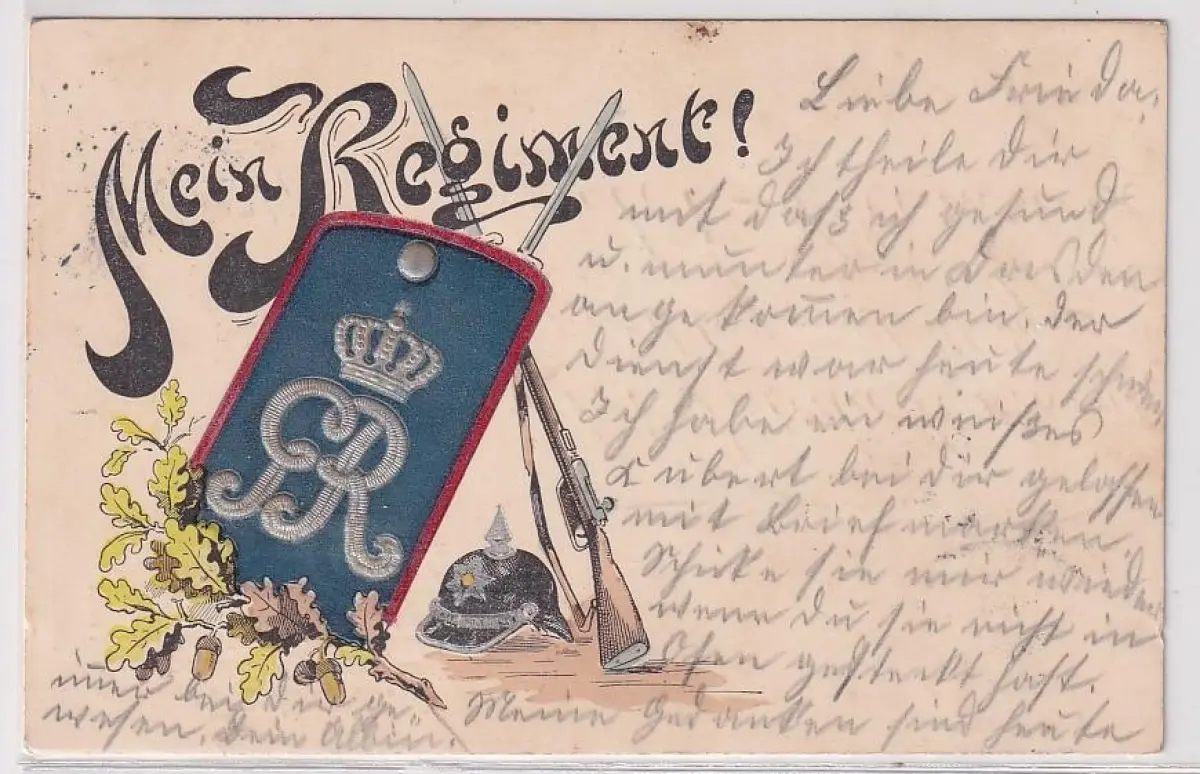 Mein Regiment!
GR
Liebe Frieda,
Ich theile dir
mit daß ich gesund
u. munter in Dresden
angekom̅en bin. Der
Dienst war heute schön,
Ich habe ein weißes
Kubert bei dir gelassen
mit Briefmarken.
Schicke sie mir wieder
wenn du sie nicht in
Ofen gesteckt hast.
Meine Gedanken sind heute
im̅er bei dir ge-
wesen. Dein Albin.